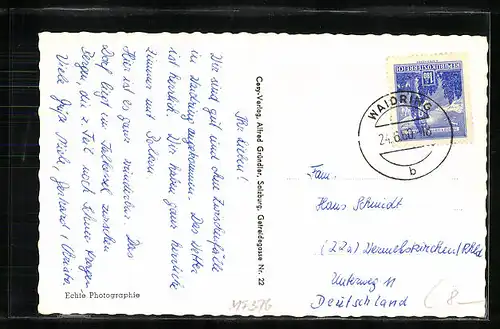 Ihr Lieben!
Wir sind gut und ohne Zwischenfälle
in Waidring angekommen. Das Wetter
ist herrlich. Wir haben ganz herrliche
Zimmer mit Balkon.
Hier ist es ganz wunderbar. Das
Dorf liegt im Talkessel zwischen
Bergen, die z. Teil noch Schnee tragen.
Viele
Echte Photographie
Cosy-Verlag, Alfred Gründler, Salzburg, Getreidegasse Nr. 22
REPUBLIK ÖSTERREICH
WAIDRING
24.6.60-18
b
Fam.
Hans Schmidt
(22a) Wermelskirchen/Rhld
Unterweg 11
Deutschland